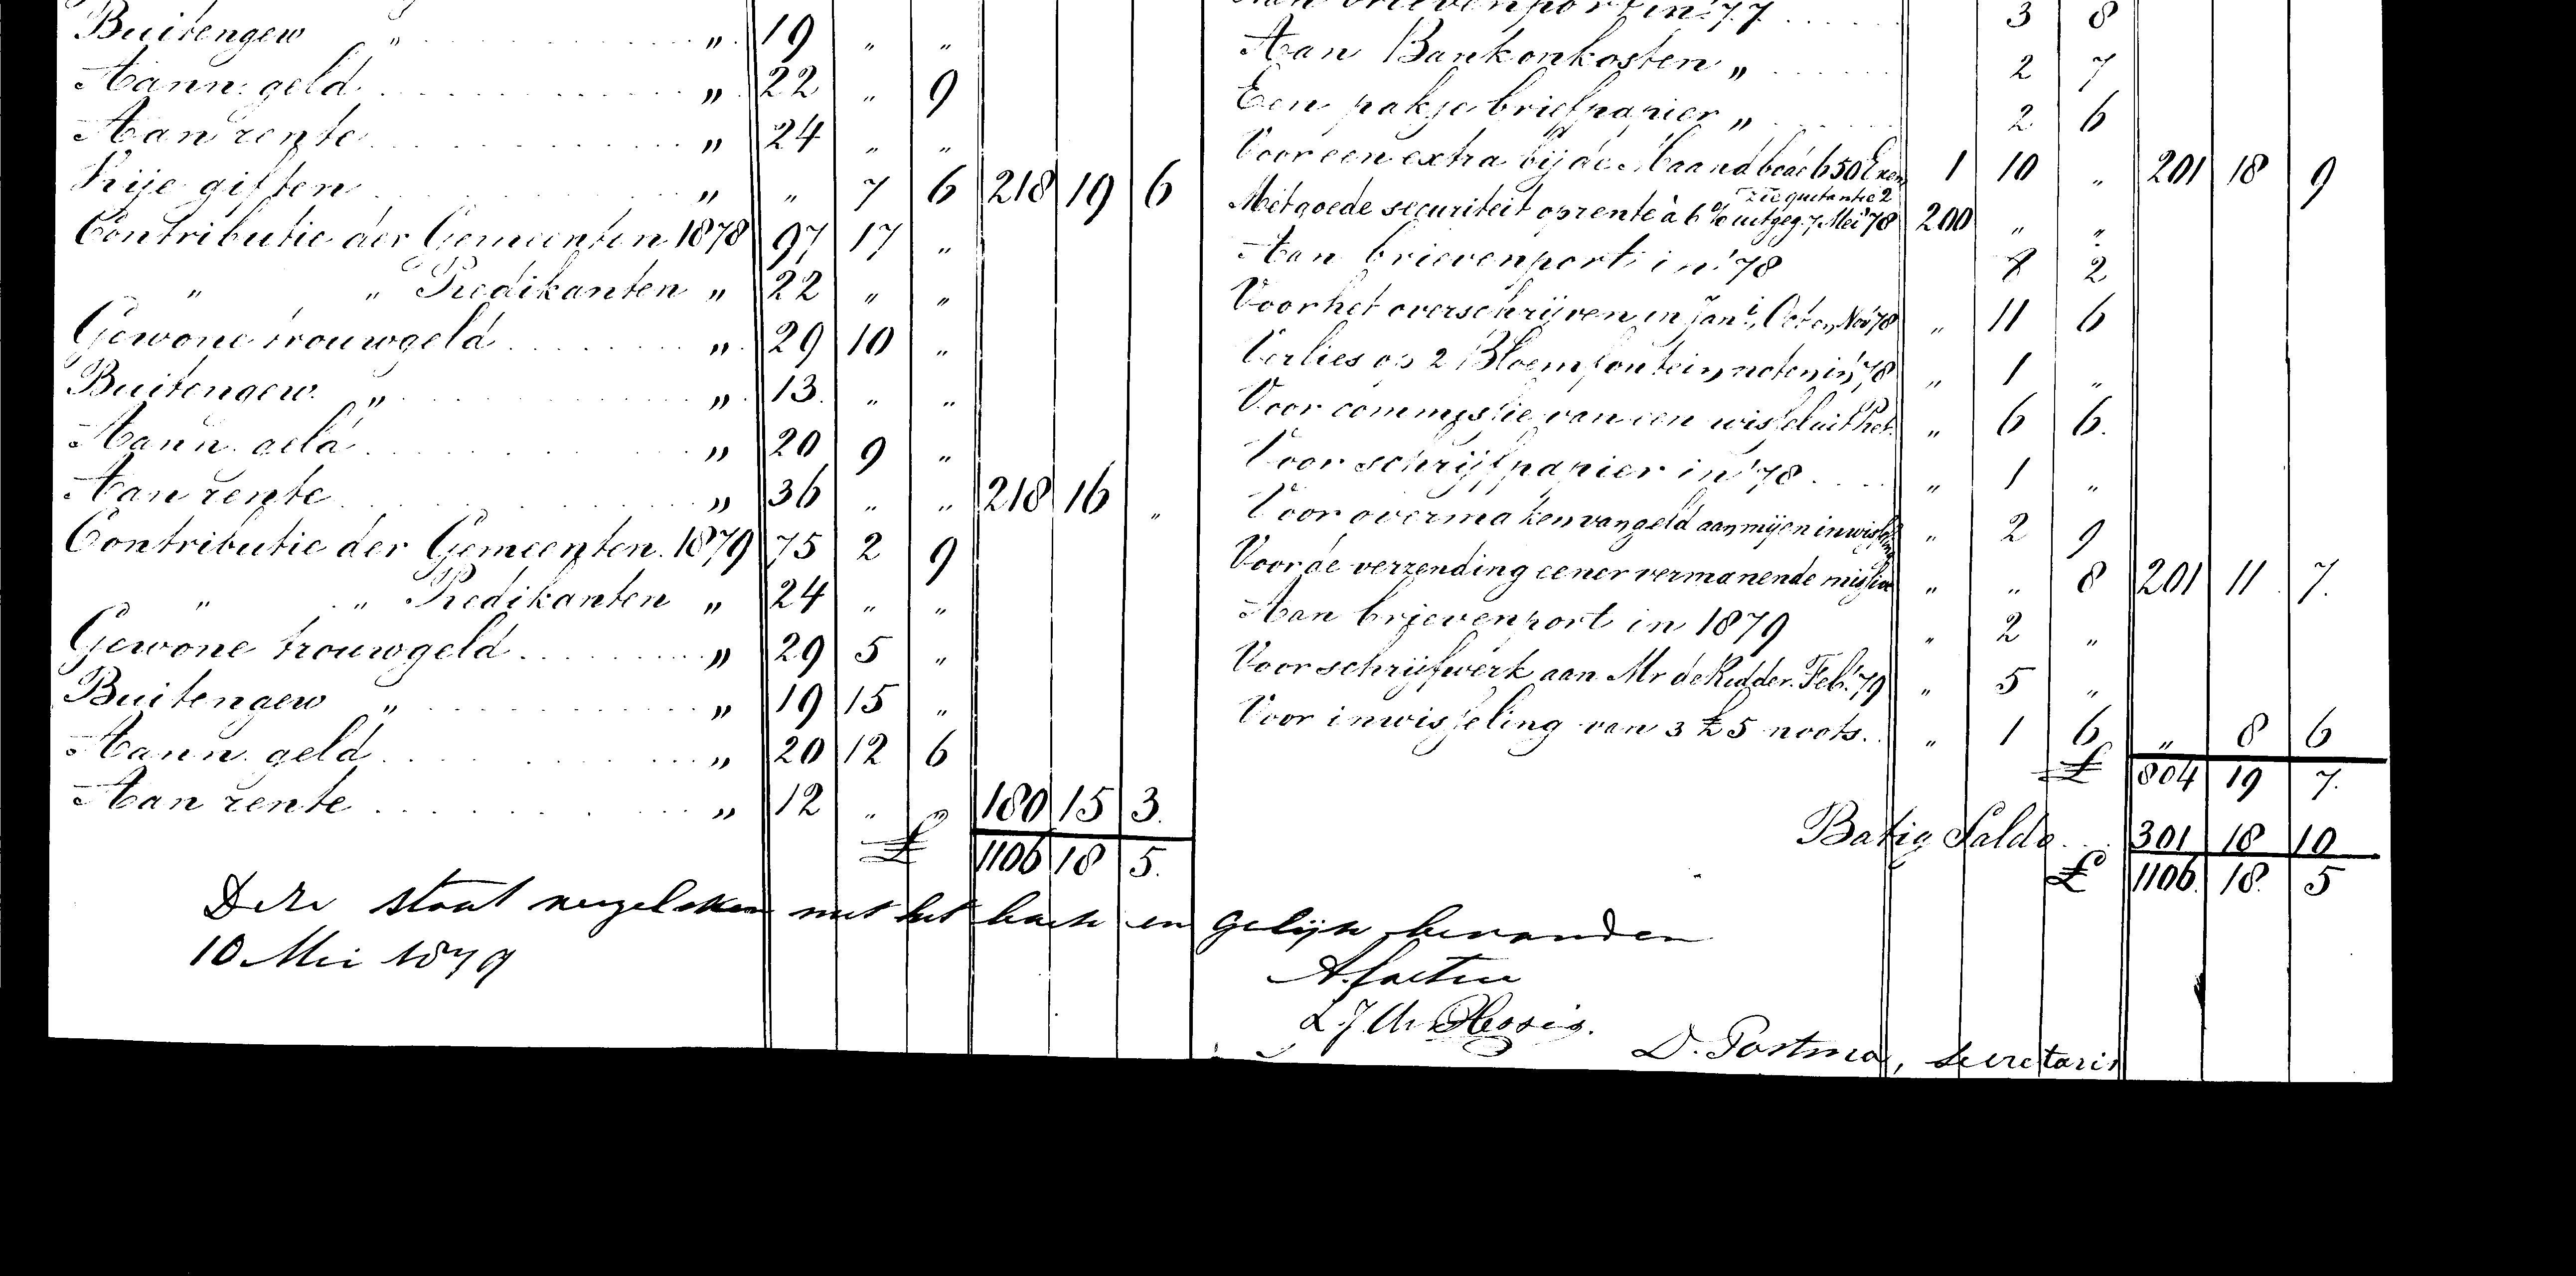 Buitengew „ „ 19 „ „
Aann. geld „ 22 „ 9
Aan rente „ 24 „ „
Vrije giften „ „ 7 6 218 19 6
Contributie der Gemeenten 1878 97 17 „
„ „ Predikanten „ 22 „ „
Gewone trouwgeld „ 29 10 „
Buitengew. „ „ 13. „ „
Aann. geld „ 20 9 „
Aan rente „ 36 „ „ 218 16 „
Contributie der Gemeenten. 1879 75 2 9
„ „ Predikanten „ 24 „ „
Gewone trouwgeld „ 29 5 „
Buitengew „ „ 19 15 „
Aann. geld „ 20 12 6
Aan rente „ 12 „ „ 180 15 3.
£ 1106 18 5.
Aan brievenport in '77 3 8
Aan Bankonkosten „ 2 7
Een pakje briefpapier „ 2 6
Voor een extra bij de Maandbode 650 Exem 1 10 „ 201 18 9
zie quitantie 2
Met goede securiteit op rente à 6 % uitgeg. 7 Mei '78 200 „ „
Aan brievenport in '78 8 2
Voor het overschrijven in Jan., Oct en Nov '78 „ 11 6
Verlies op 2 Bloemfontein noten in '78 „ 1 „
Voor commissie van een wissel uit Pret. „ 6 6.
Voor schrijfpapier in '78 „ 1 „
Voor overmaken van geld aan mij en inwisseling „ 2 9
Voor de verzending eener vermanende missive „ „ 8 201 11 7.
Aan brievenport in 1879 „ 2 „
Voor schrijfwerk aan Mr de Ridder. Feb. '79 „ 5 „
Voor inwisseling van 3 £5 noots. „ 1 6 „ 8 6
£ 804 19 7.
Batig Saldo 301 18 10
£ 1106. 18. 5
Deze staat vergeleken met het boek en gelijk bevonden
10 Mei 1879
L. J. du Plessis.
D. Postma, Secretaris